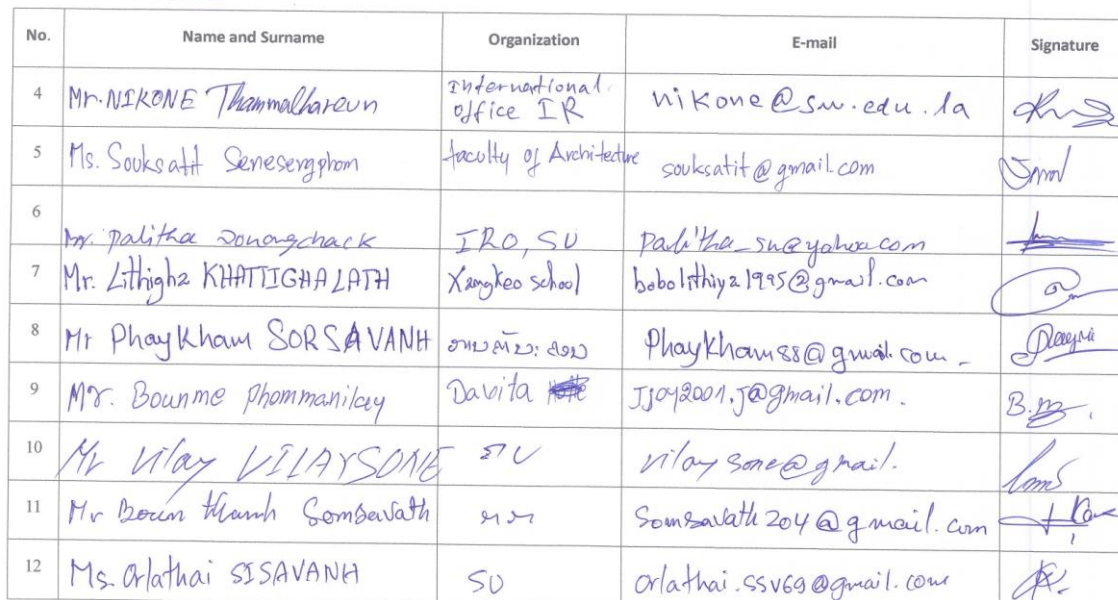 No. Name and Surname Organization E-mail Signature
4 Mr. NIKONE International office IR nikone@su.edu.la
5 Ms. Souksatit Senesergphom faculty of Architecture souksatit@gmail.com
6 Mr. Palitha Douangchack IRO, SU palitha_su@yahoo.com
7 Mr. Lithigha KHATTIGHALATH Xangkeo school bobolithiya1995@gmail.com
8 Mr Phaykham SORSAVANH Phaykham88@gmail.com
9 Mr. Bounme Phommanilay Davita Jjoy2001.J@gmail.com.
10 Mr Vilay VILAYSONE vilaysone@gmail.
11 Mr Boun thanh Somsavath Somsavath204@gmail.com
12 Ms. Orlathai SISAVANH SU orlathai.ssv69@gmail.com